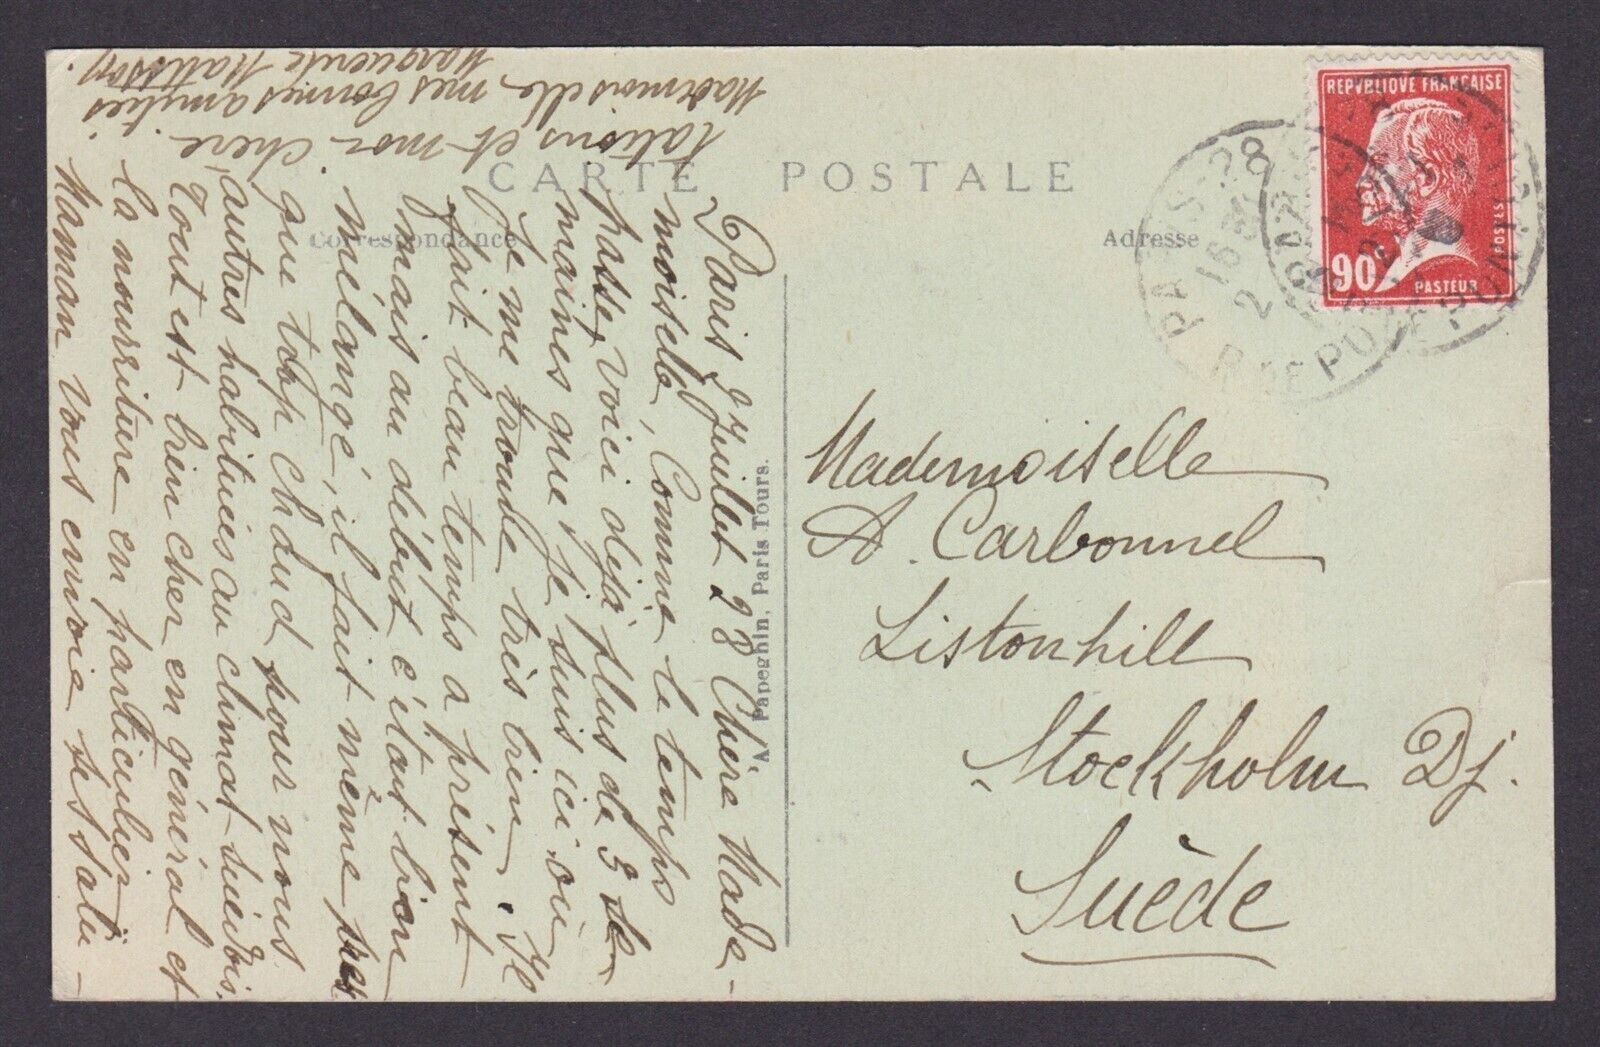 CARTE POSTALE
Correspondance
Adresse
REPVBLIQVE FRANÇAISE
POSTES
90
PASTEUR
PARIS-28
R. DE
Paris 2 Juillet 28 Chère Made-
moiselle, Comme le temps
passe, voici déjà plus de 3 se-
maines que je suis ici où
je me trouve très bien. Il
fait beau temps à présent
mais au débût c'était bien
mélangé, il fait même
que trop chaud pour nous
autres habitués au climat suédois.
Tout est bien cher en général et
la nourriture en particulier.
Maman vous envoie ses salu-
tations et moi chère
Mademoiselle, mes bonnes amitiés
Marguerite
A. Papeghin, Paris Tours.
Mademoiselle
A. Carbonnel
Listonhill
Stockholm Dj.
Suède